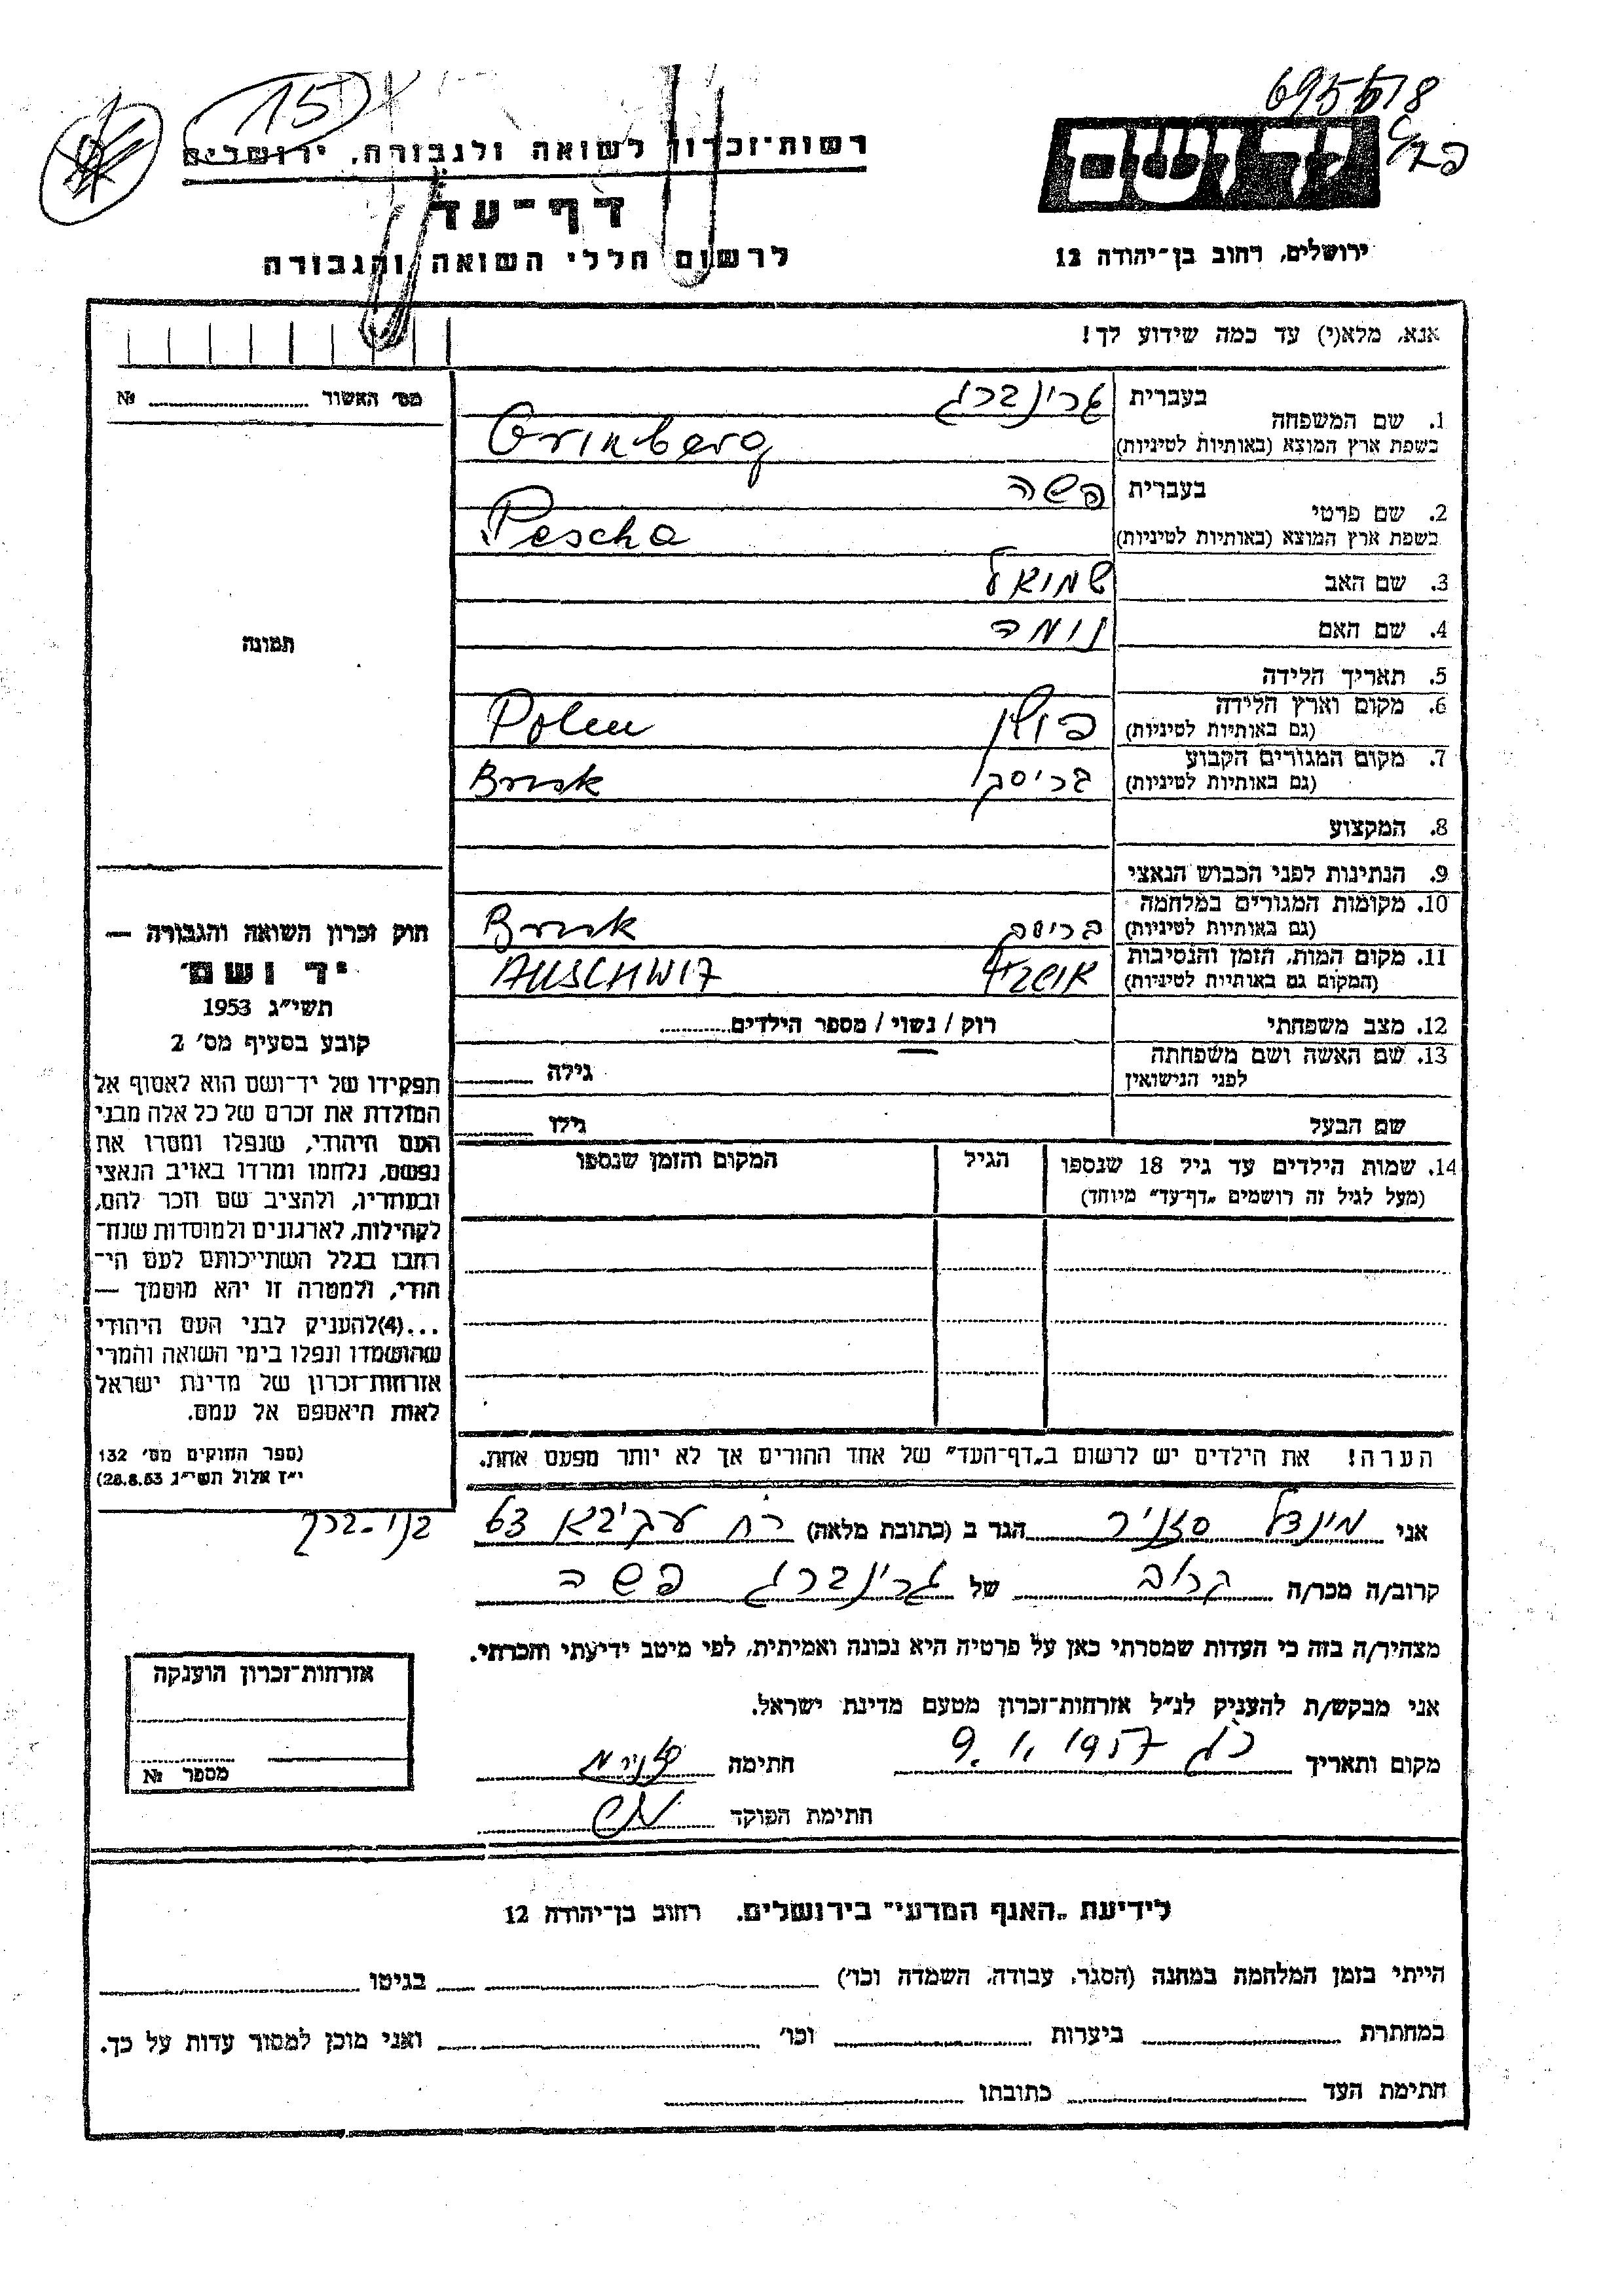 695518
15
רשות־זכרון לשואה ולגבורה, ירושלים
דף־עד
לרשום חללי השואה והגבורה
יד ושם
ירושלים, רחוב בן־יהודה 12
אנא, מלא(י) עד כמה שידוע לך!
מס׳ האשור № 
1. שם המשפחה בעברית גרינברג
בשפת ארץ המוצא (באותיות לטיניות) Grinberg
2. שם פרטי בעברית פשה
בשפת ארץ המוצא (באותיות לטיניות) Pescha
3. שם האב שמואל
4. שם האם נומה
תמונה
5. תאריך הלידה
6. מקום וארץ הלידה (גם באותיות לטיניות) פולין Polen
7. מקום המגורים הקבוע (גם באותיות לטיניות) בריסק Brisk
8. המקצוע
9. הנתינות לפני הכבוש הנאצי
10. מקומות המגורים במלחמה (גם באותיות לטיניות) בריסק Brisk
11. מקום המות, הזמן והנסיבות (המקום גם באותיות לטיניות) AUSCHWIZ
12. מצב משפחתי רוק / נשוי / מספר הילדים
13. שם האשה ושם משפחתה לפני הנישואין גילה
שם הבעל גילו
14. שמות הילדים עד גיל 18 שנספו הגיל המקום והזמן שנספו
(מעל לגיל זה רושמים „דף־עד״ מיוחד)
חוק זכרון השואה והגבורה —
יד ושם
תשי״ג 1953
קובע בסעיף מס׳ 2
תפקידו של יד־ושם הוא לאסוף אל
המולדת את זכרם של כל אלה מבני
העם היהודי, שנפלו ומסרו את
נפשם, נלחמו ומרדו באויב הנאצי
ובעוזריו, ולהציב שם וזכר להם,
לקהילות, לארגונים ולמוסדות שנח־
רחבו בגלל השתייכותם לעם הי־
הודי, ולמטרה זו יהא מוסמך —
...(4)להעניק לבני העם היהודי
שהושמדו ונפלו בימי השואה והמרי
אזרחות־זכרון של מדינת ישראל
לאות היאספם אל עמם.
(ספר החוקים מס׳ 132
י״ז אלול תשי״ג 28.8.53)
הערה! את הילדים יש לרשום ב„דף־העד״ של אחד ההורים אך לא יותר מפעם אחת.
אני מינדל סזניר הגר ב (כתובת מלאה) רח עקיבא בני-ברק
קרוב/ה מכר/ה קרוב של גרינברג פשה
מצהיר/ה בזה כי העדות שמסרתי כאן על פרטיה היא נכונה ואמיתית, לפי מיטב ידיעתי והכרתי.
אני מבקש/ת להעניק לנ״ל אזרחות־זכרון מטעם מדינת ישראל.
מקום ותאריך 9.1.1957 חתימה
חתימת הפוקד
אזרחות־זכרון הוענקה
מספר №
לידיעת „האגף המדעי״ בירושלים, רחוב בן־יהודה 12
הייתי בזמן המלחמה במחנה (הסגר, עבודה, השמדה וכו׳) בגיטו
במחתרת ביערות וכו׳ ואני מוכן למסור עדות על כך.
חתימת העד כתובתו